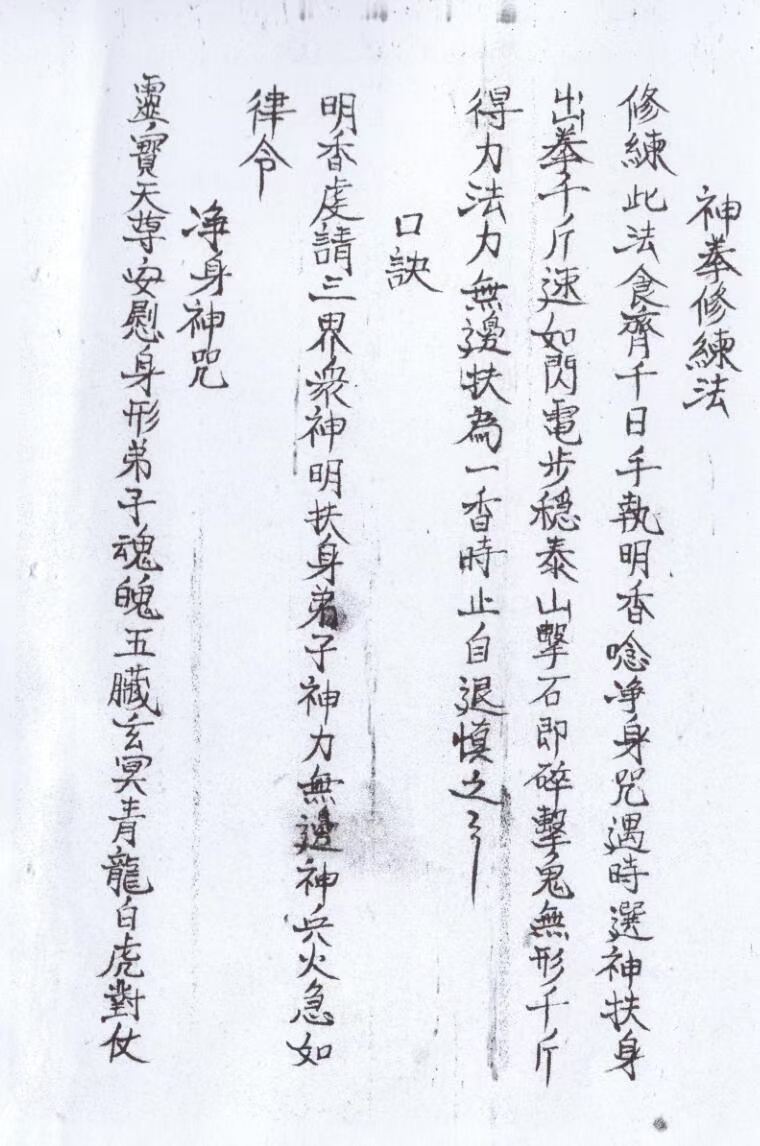 神拳修練法
修練此法食齊千日手執明香唸净身咒遇時選神扶身
出拳千斤速如閃電步穩泰山擊石即碎擊鬼無形千斤
得力法力無邊扶為一香時止自退慎之々
口訣
明香虔請三界衆神明扶身弟子神力無邊神兵火急如
律令
净身神咒
靈寶天尊安慰身形弟子魂魄五臟玄冥青龍白虎對仗